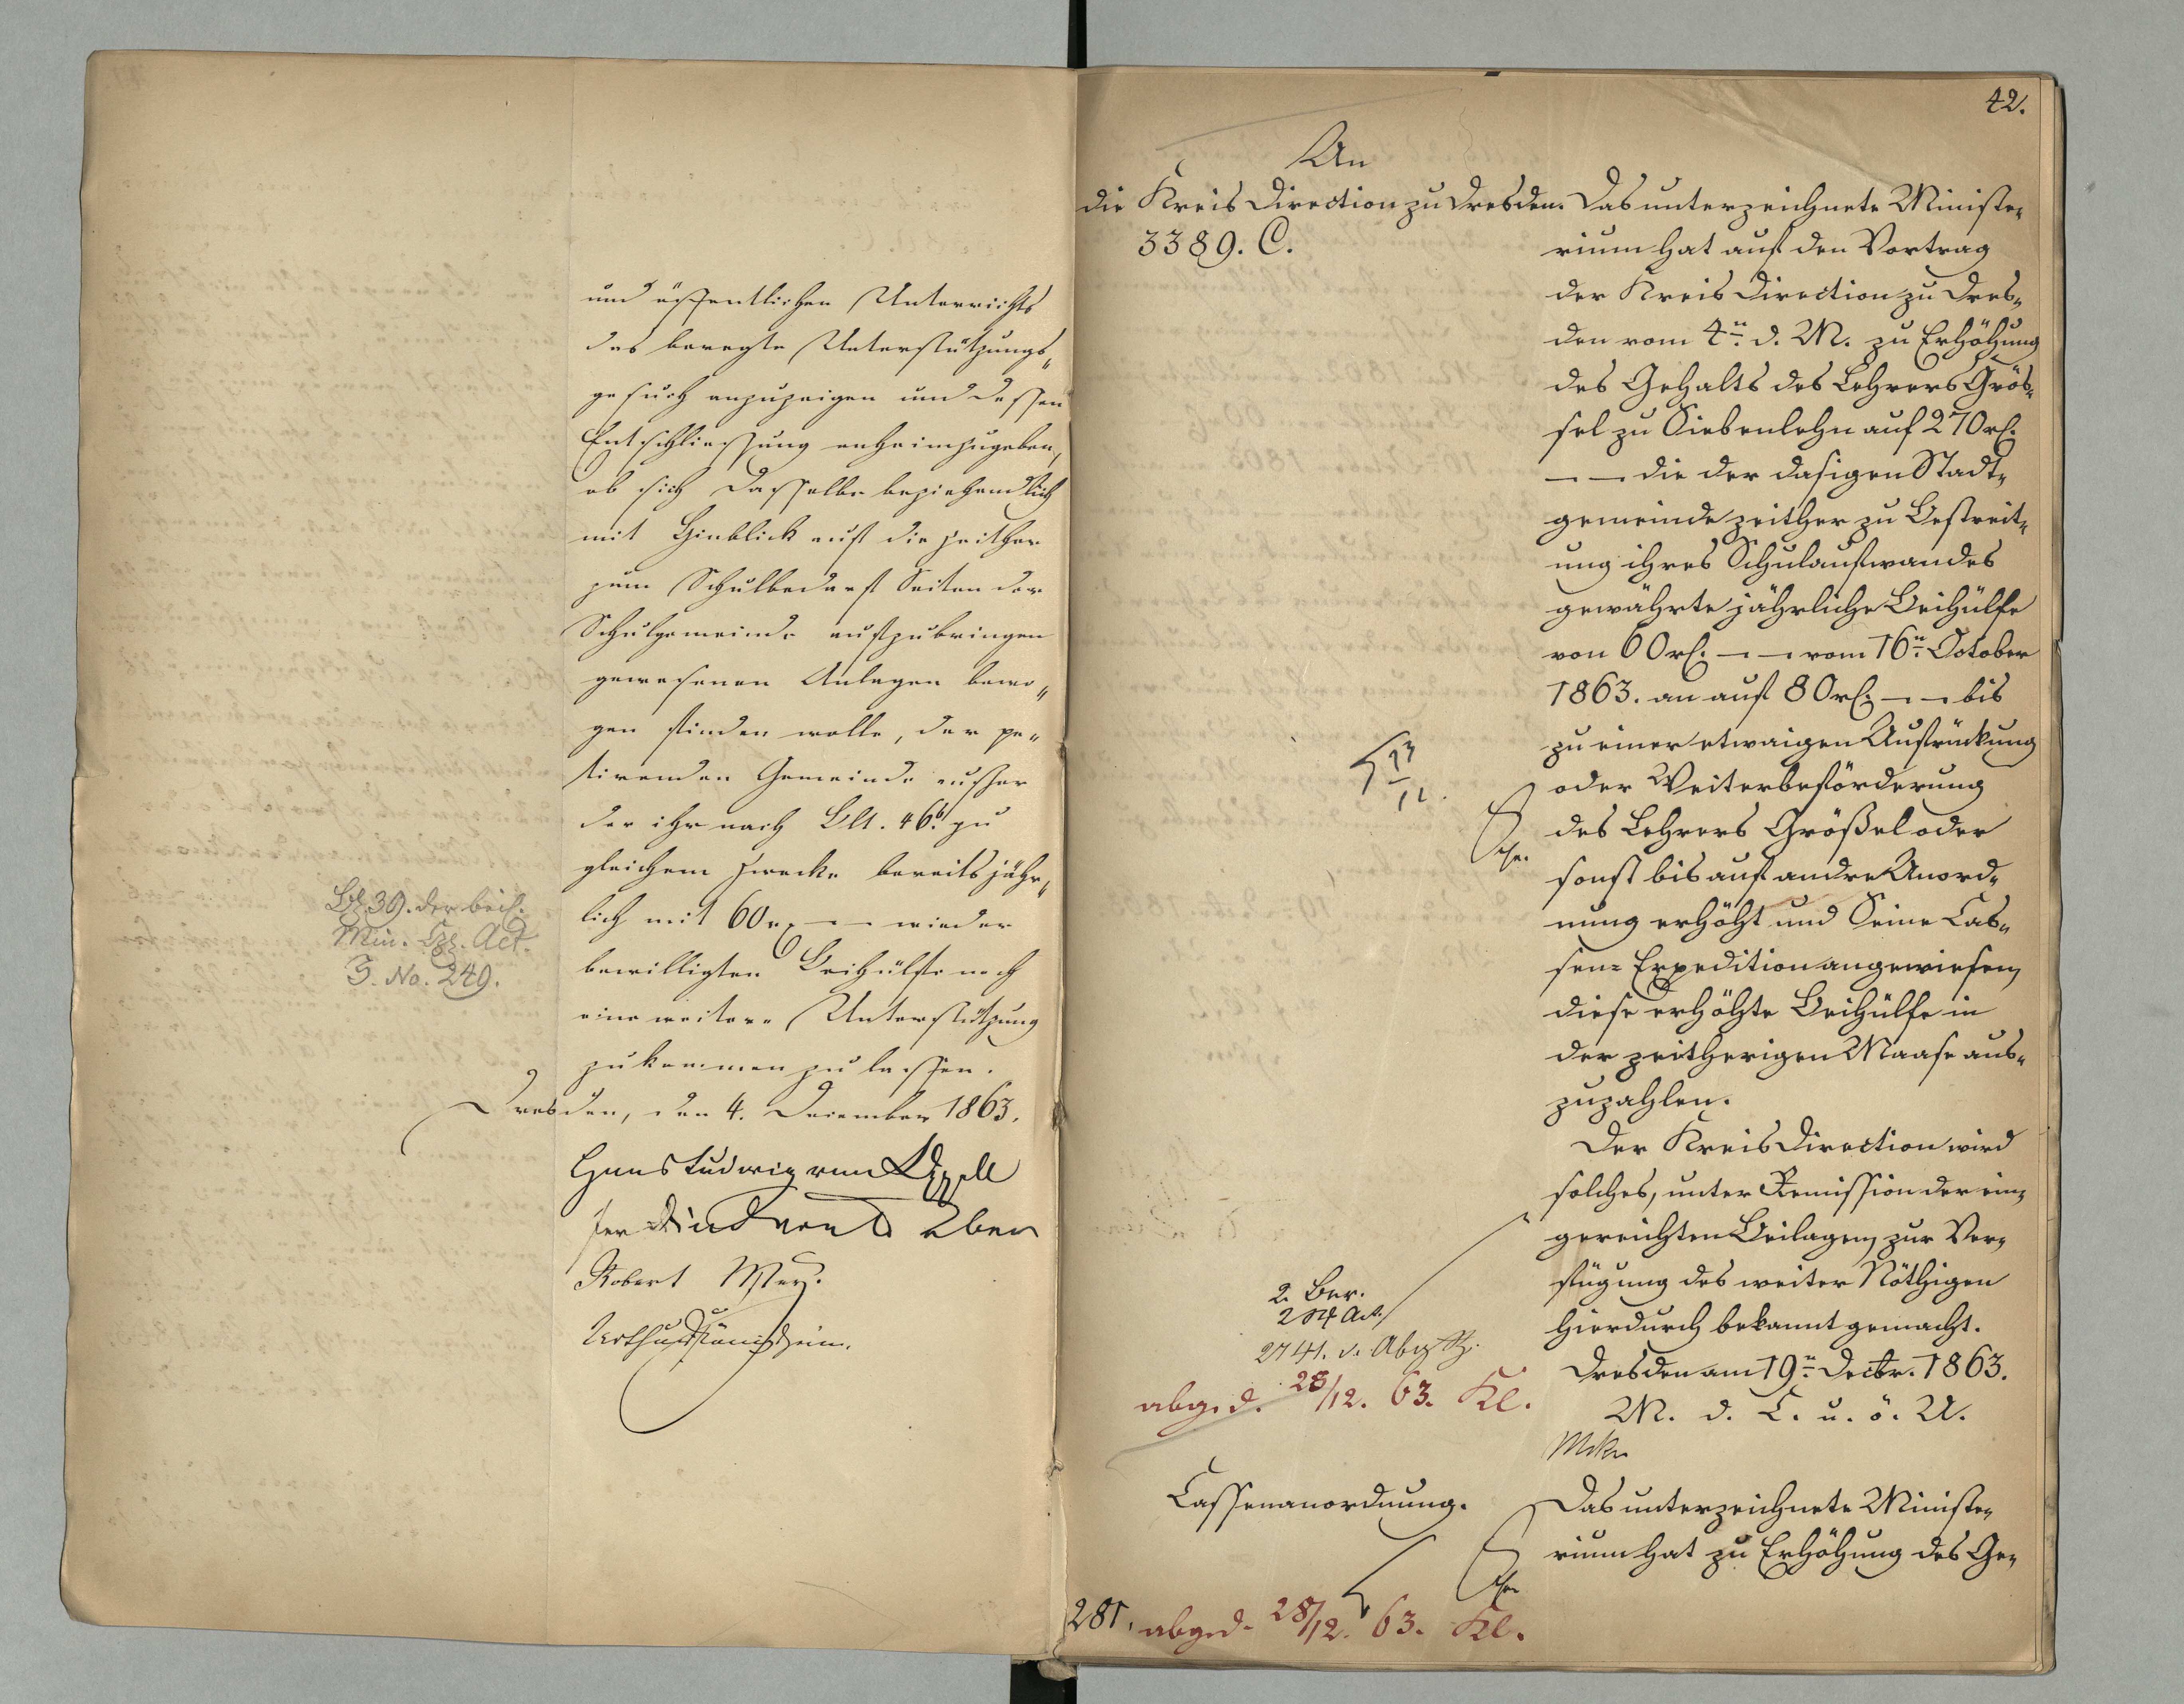 und öffentlichen Unterrichts
das beregte Unterstützungs„
gesuch anzuzeigen und dessen
Entschliessung anheimzugeben,
ob sich Dasselbe beziehendlich
mit Hinblick auf die zeither
zum Schulbedarf Seiten der
Schulgemeinde aufzubringen
gewesenen Anlagen bewo„
gen finden wolle, der pe„
tirenden Gemeinde außer
der ihr nach Blt. 46b. zu
gleichem Zwecke bereits jähr„
lich mit 60 rℓ. — — wieder
bewilligten Beihülfe noch
eine weitere Unterstützung
zukommen zu lassen.
Dresden, den 4. December 1863.
Hans Ludwig von
Robert
Bl. 39. der beif.
Min. Act.
J. No. 249.
42.
An
die Kreis Direction zu Dresden.
3389. C.
Das unterzeichnete Ministe„
rium hat auf den Vortrag
der Kreis Direction zu Dres„
den vom 4n. d. M. zu Erhöhung
des Gehalts des Lehrers Grös„
sel zu Siebenlehn auf 270 rℓ.
— — die der dasigen Stadt„
gemeinde zeither zu Bestreit„
ung ihres Schulaufwandes
gewährte jährliche Beihülfe
von 60 rℓ. — — vom 16n. October
1863. an auf 80 rℓ. — — bis
zu einer etwaigen Aufrückung
oder Weiterbeförderung
des Lehrers Größel oder
sonst bis auf andre Anord„
nung erhöht und Seine Cas„
sen= Expedition angewiesen,
diese erhöhte Beihülfe in
der zeitherigen Maase aus„
zuzahlen.
Der Kreis Direction wird
solches, unter Remission der ein„
gereichten Beilagen, zur Ver„
fügung des weiter Nöthigen
hierdurch bekannt gemacht.
Dresden am 19n. Decbr. 1863.
M. d. C. u. ö. U.
2. Ber.
2 Act.
2741. d.
abgd. 28/12. 63. Kl.
Cassenanordnung.
Das unterzeichnete Ministe„
rium hat zu Erhöhung des Ge„
281. abgd. 28/12. 63. Kl.